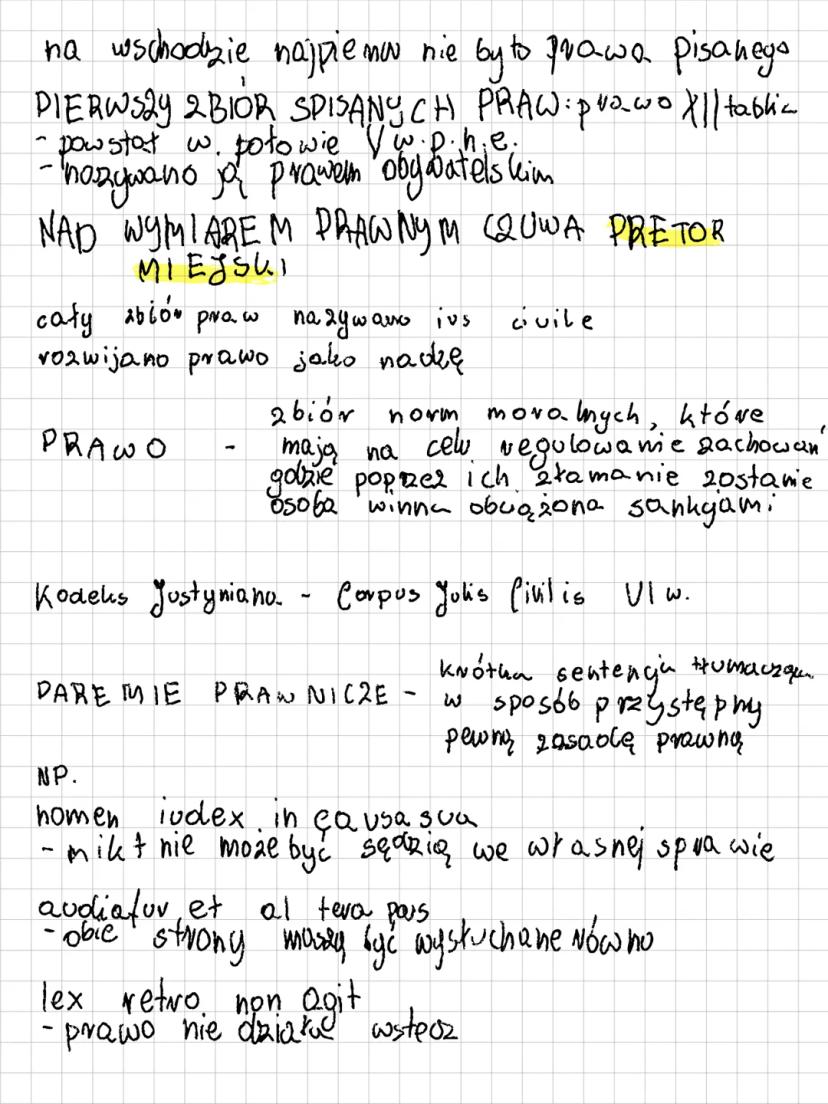 na wschodzie najpierw nie było prawa pisanego
PIERWSZY ZBIÓR SPISANYCH PRAW: prawo XII tablic
- powstał w. połowie V w.p.n.e.
- nazywano ją prawem obywatelskim
NAD WYMIAREM PRAWNYM CZUWA PRETOR
MIEJSKI
cały zbiór praw nazywano ius civile
rozwijano prawo jako naukę
zbiór norm moralnych, które
PRAWO - mają na celu regulowanie zachowań
gdzie poprzez ich złamanie zostanie
osoba winna obciążona sankcjami
Kodeks Justyniana - Corpus Juis Civilis VI w.
krótka sentencja tłumacząca
PAREMIE PRAWNICZE - w sposób przystępny
pewną zasadę prawną
NP.
nomen iudex in causa sua
- nikt nie może być sędzią we własnej sprawie
audiatur et altera pars
- obie strony muszą być wysłuchane równo
lex retro non agit
- prawo nie działa wstecz